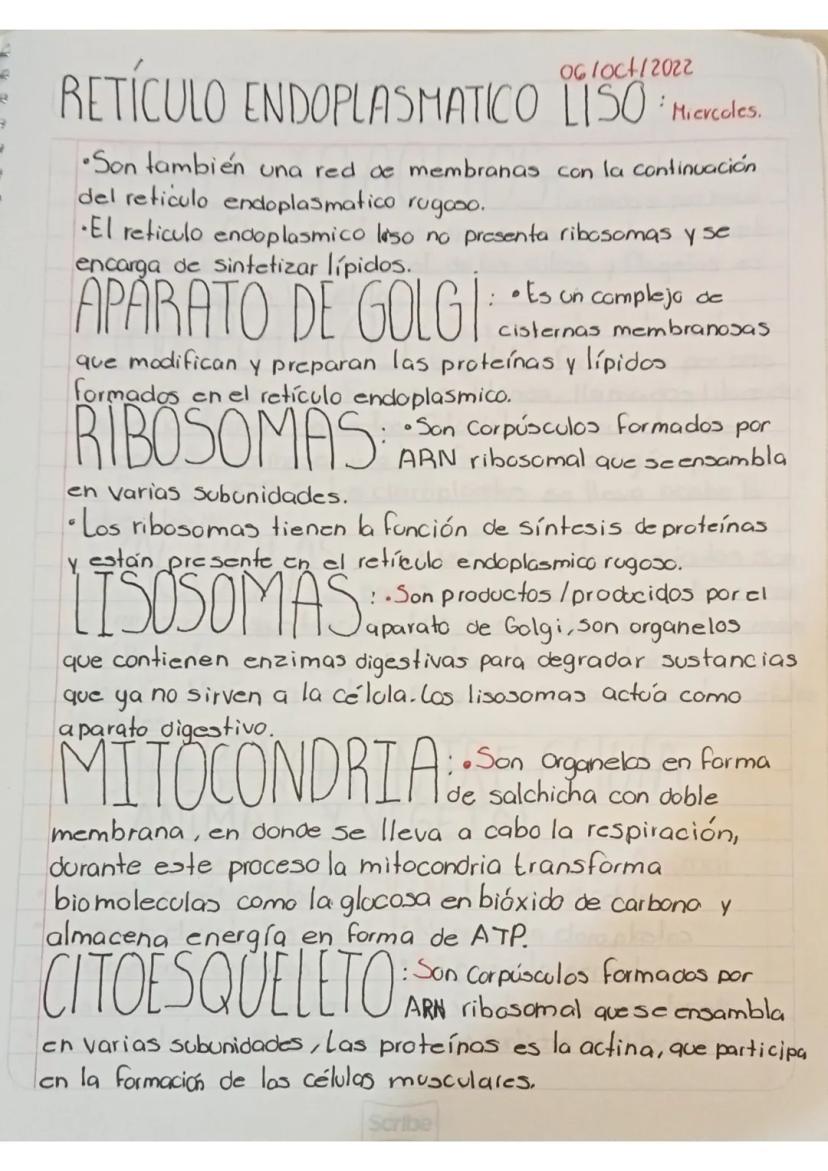 06/Oct/2022
RETÍCULO ENDOPLASMATICO LISO: Miercoles.
•Son también una red de membranas con la continuación
del reticulo endoplasmatico rugoso.
•El reticulo endoplasmico liso no presenta ribosomas y se
encarga de sintetizar lípidos.
APARATO DE GOLGI: •Es un complejo de
cisternas membranosas
que modifican y preparan las proteínas y lípidos
formados en el retículo endoplasmico.
RIBOSOMAS: •Son Corpúsculos formados por
ARN ribosomal que se ensambla
en varias subunidades.
•Los ribosomas tienen la función de síntesis de proteínas
y están presente en el retículo endoplasmico rugoso.
LISOSOMAS: •Son productos/producidos por el
aparato de Golgi, son organelos
que contienen enzimas digestivas para degradar sustancias
que ya no sirven a la célula. Los lisosomas actúa como
aparato digestivo.
MITOCONDRIA: •Son Organelos en forma
de salchicha con doble
membrana, en donde se lleva a cabo la respiración,
durante este proceso la mitocondria transforma
biomoleculas como la glucosa en bióxido de carbono y
almacena energía en forma de ATP.
CITOESQUELETO: Son Corpúsculos formados por
ARN ribosomal que se ensambla
en varias subunidades, Las proteínas es la actina, que participa
en la formación de las células musculares.
Scribe